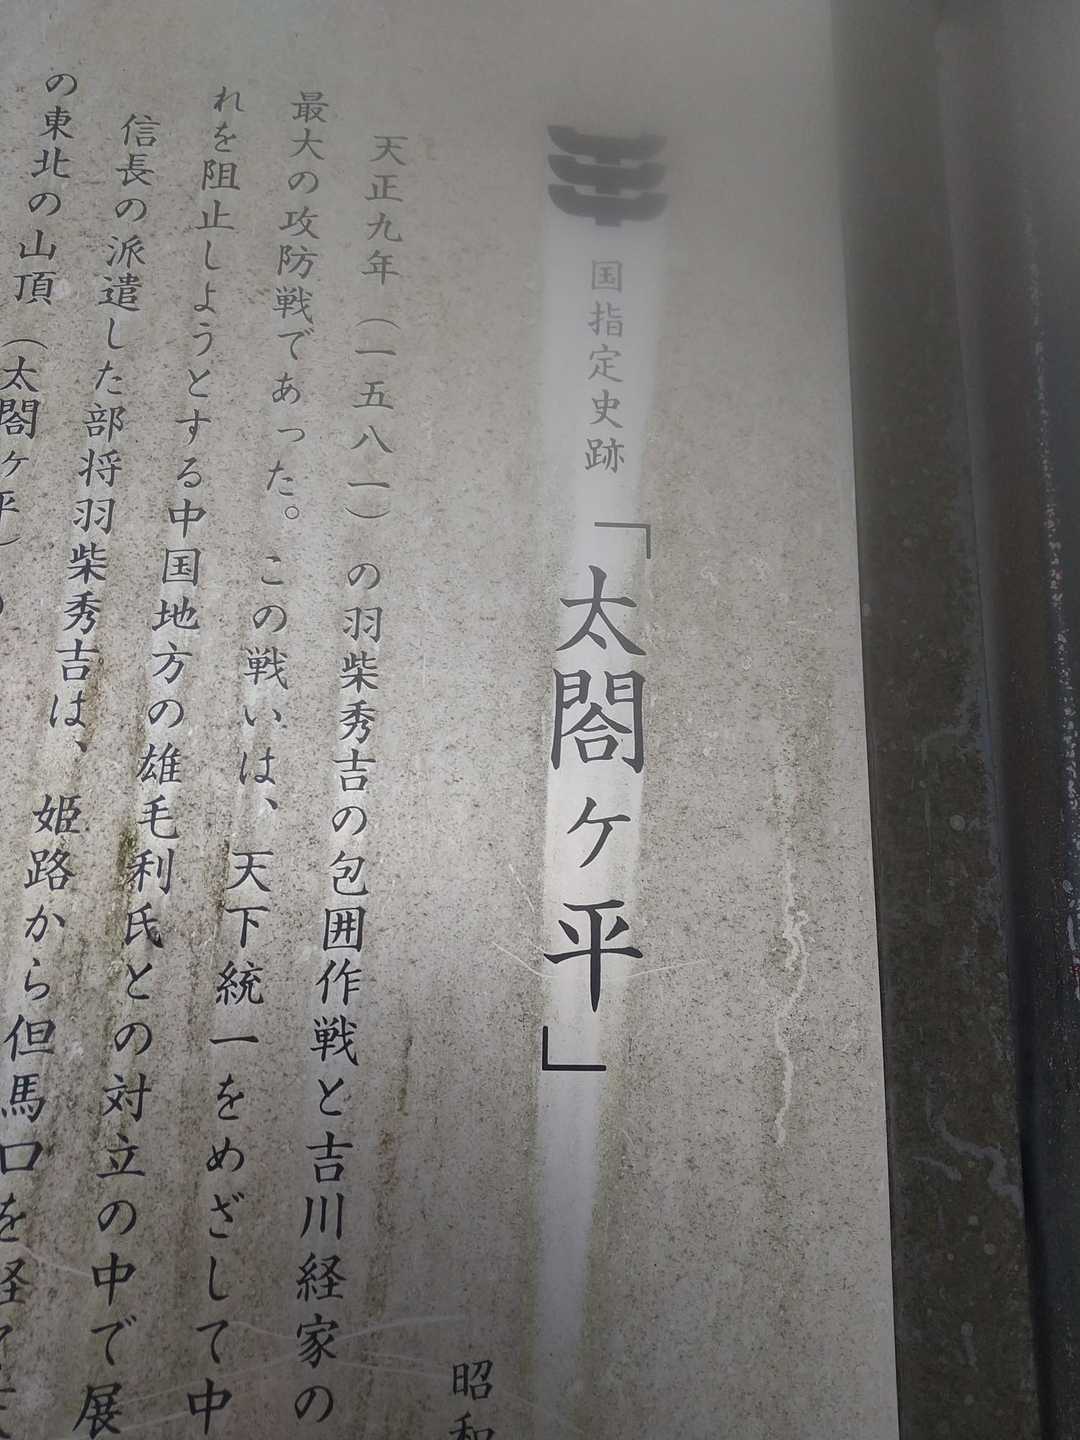 国指定史跡「太閤ヶ平」
昭和
天正九年（一五八一）の羽柴秀吉の包囲作戦と吉川経家の
最大の攻防戦であった。この戦いは、天下統一をめざして中
れを阻止しようとする中国地方の雄毛利氏との対立の中で展
信長の派遣した部将羽柴秀吉は、姫路から但馬口を経て
の東北の山頂（太閤ヶ平）